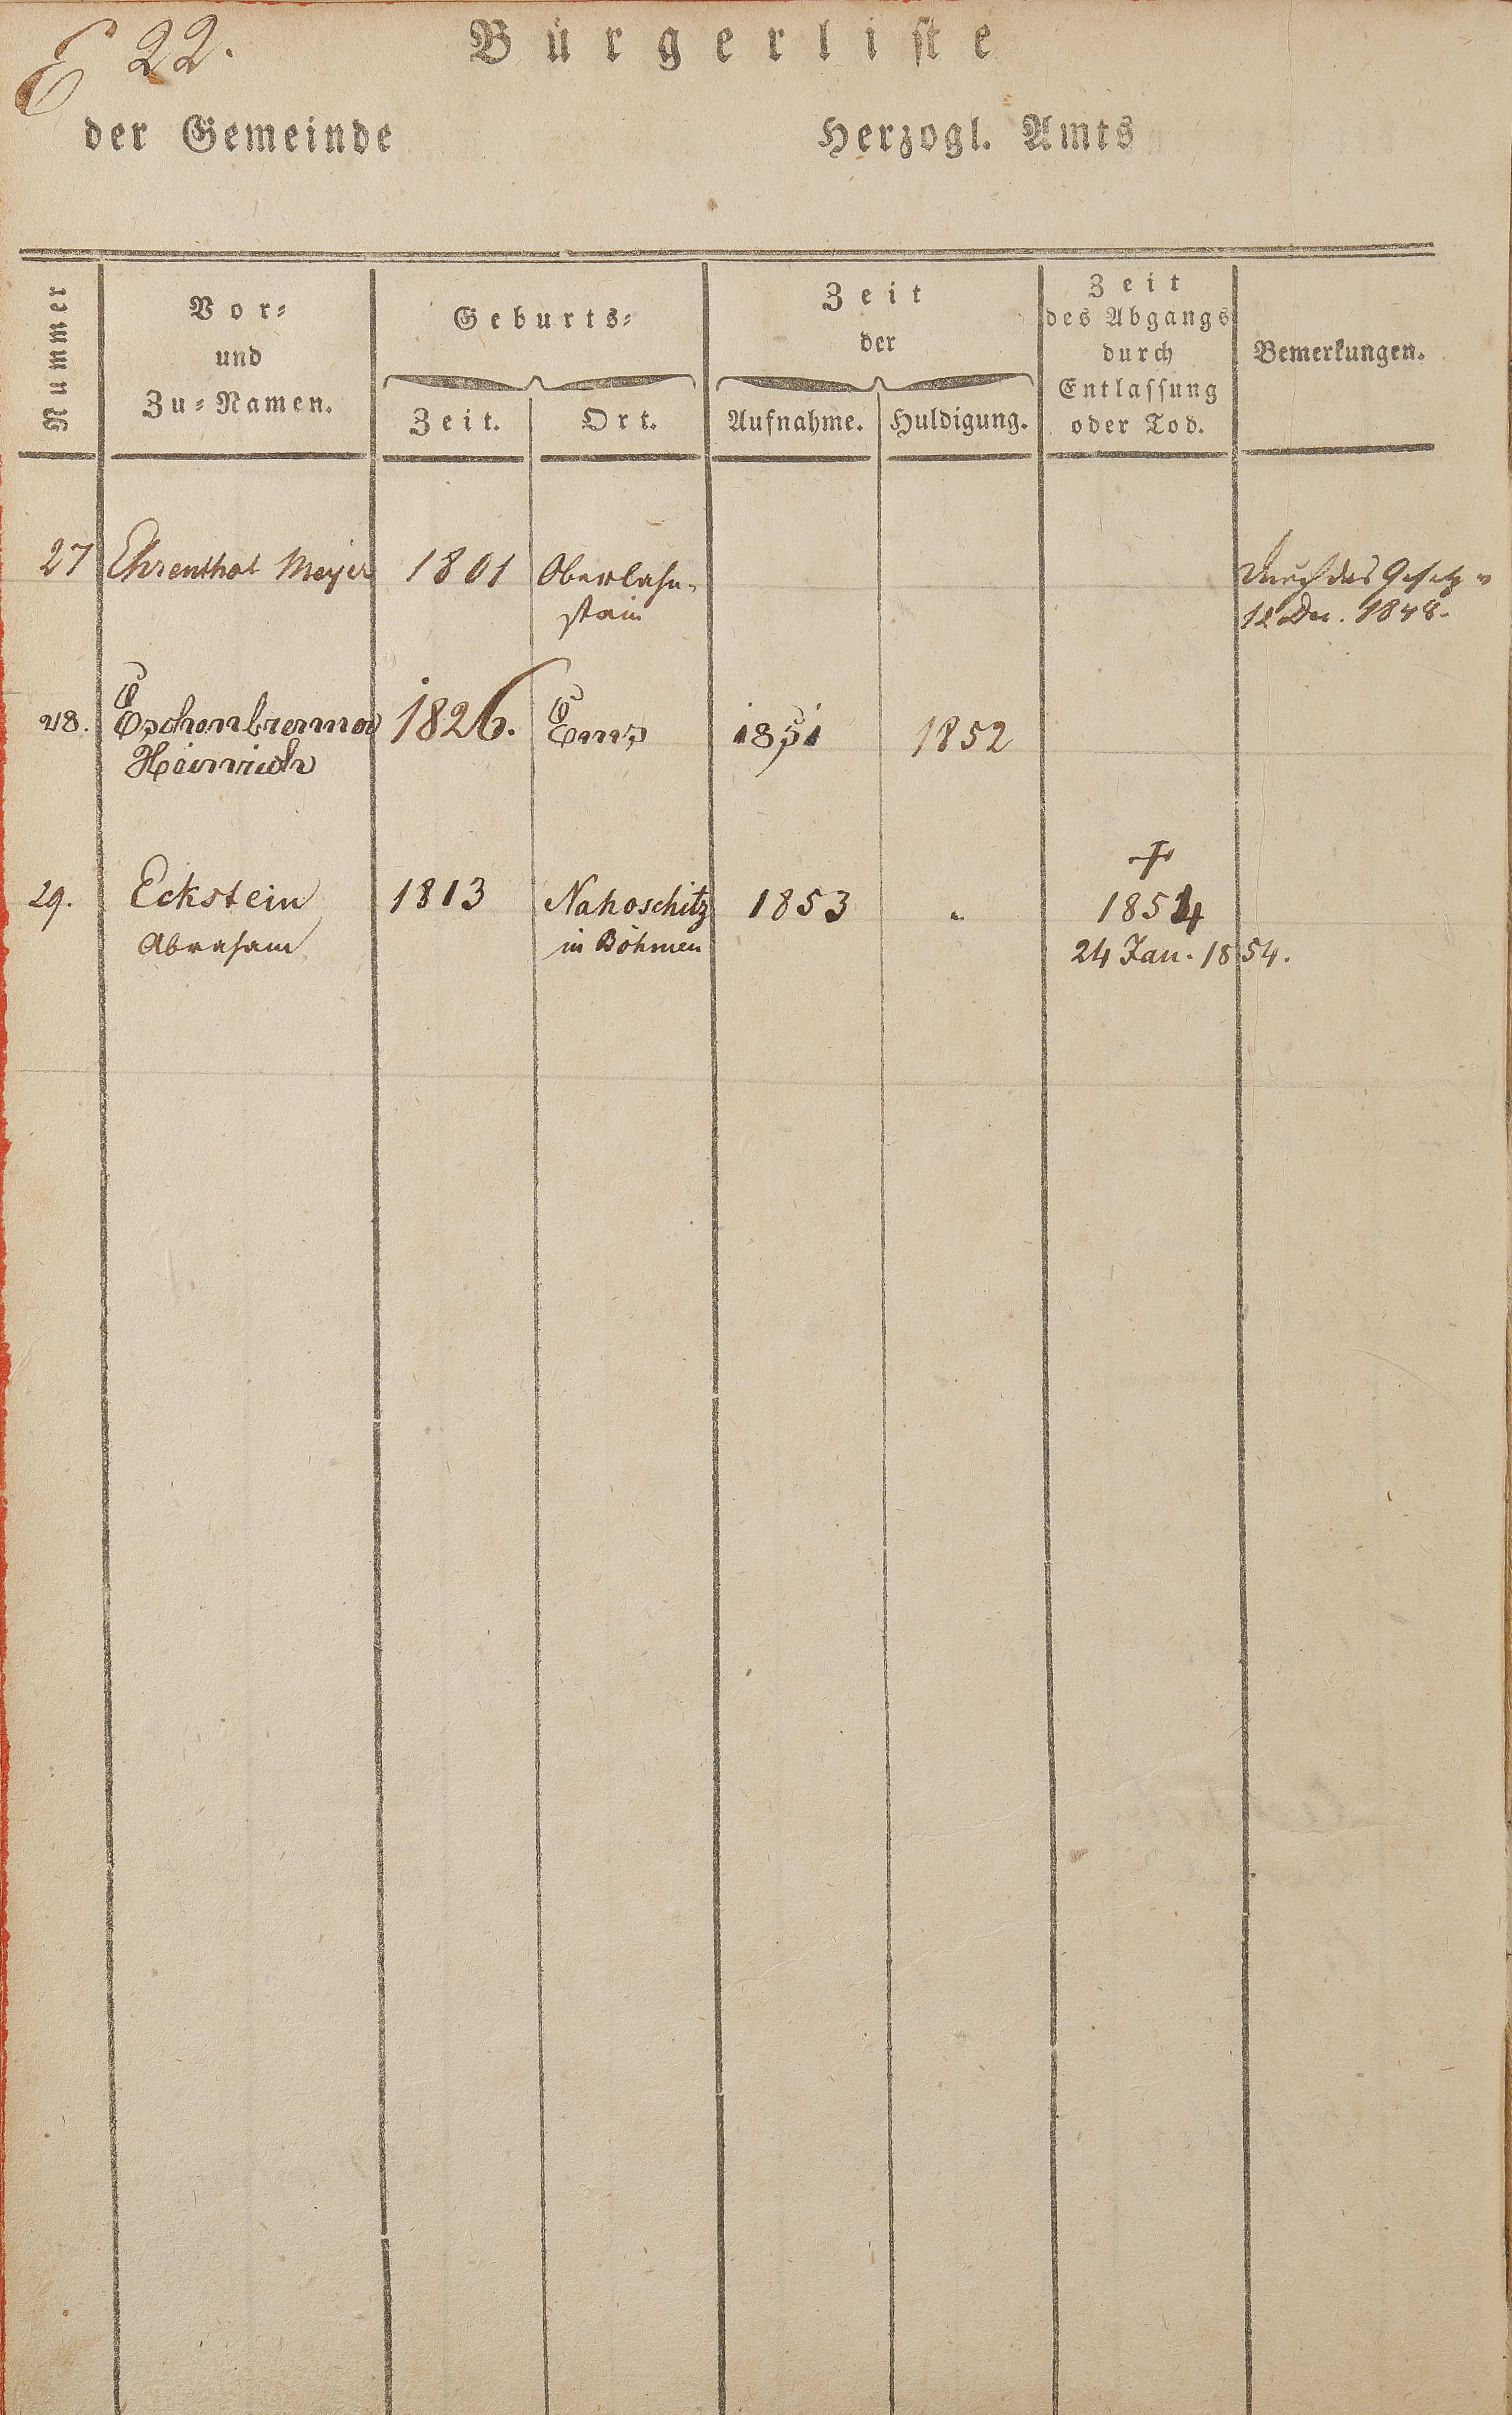 E 22.
Bürgerliste
der Gemeinde Herzogl. Amts
Nummer
Vor-
und
Zu-Namen.
Geburts-
Zeit. Ort.
Zeit
der
Aufnahme. Huldigung.
Zeit
des Abgangs
durch
Entlassung
oder Tod.
Bemerkungen.
27 Ehrenthal Meyer 1801 Oberlahn- Durch das Gesetz v
stein 12 Dec. 1848.
28. Eschenbrenner 1826. Ems 1851 1852
Heinrich
†
29. Eckstein 1813 Nahoschitz 1853 " 1854
Abraham in Böhmen 24 Jan. 1854.